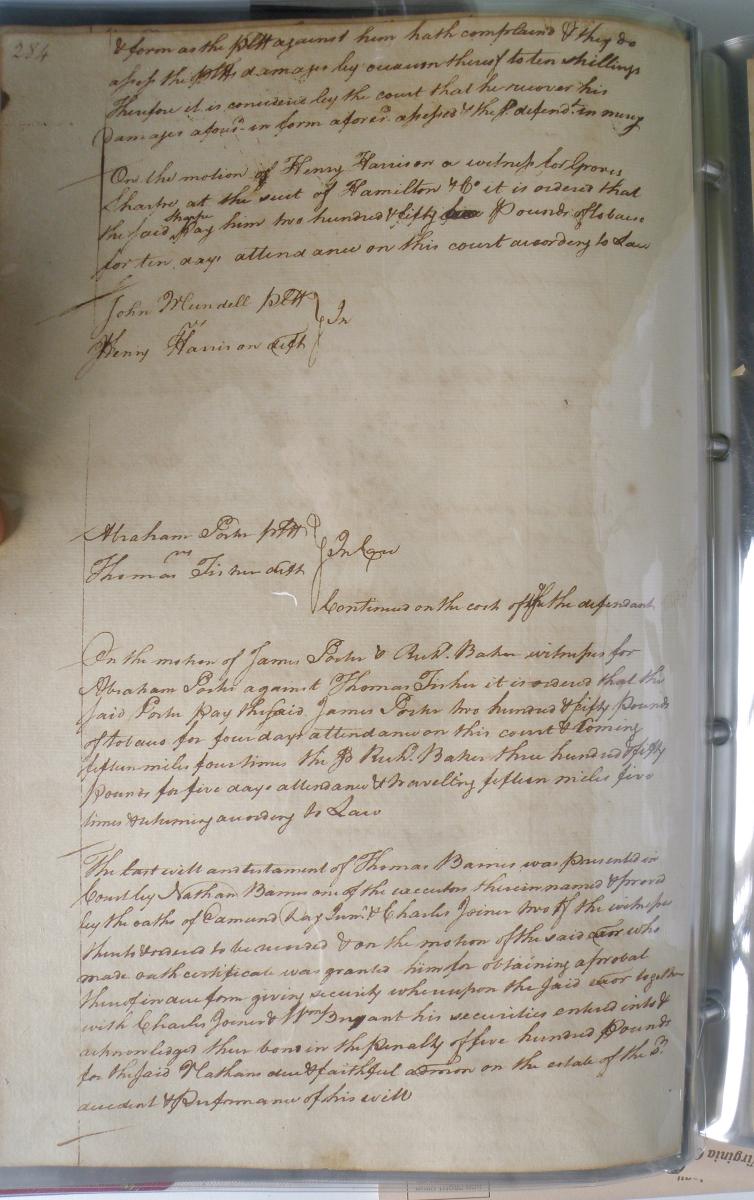 284
& form as the pltf against him hath complaind & they do
assess the pltfs damages by occasion thereof to ten shillings
Therefore it is considerd by the court that he recover his
damages aforsd. in form aforesd. assessed & the sd. defendt. in mercy
On the motion of Henry Harrison a witness for Groves
Sharpe at the suit of Hamilton & Co it is ordered that
the said Sharpe Pay him two hundred & fifty Pounds of tobacco
for ten days attendance on this court according to Law
John Mundell pltf
In
Henry Harrison deft
Abraham Porter pltf
In Case
Thomas Fisher deft
Continued on the cost of the defendant
On the motion of James Porter & Richd. Baker witnesses for
Abraham Porter against Thomas Fisher it is ordered that the
said Porter pay the said James Porter two hundred & fifty pounds
of tobacco for four days attendance on this court & Coming
fifteen miles four times the sd Richd. Baker three hundred & fifty
Pounds for five days attendance & travelling fifteen miles five
times & returning according to Law
The last will and testament of Thomas Barnes was presented in
Court by Nathan Barnes one of the executors therein named & proved
by the oaths of Edmund Day Junr. & Charles Joiner two of the witnesses
thereto & ordered to be recorded & on the motion of the said exor who
made oath certificate was granted him for obtaining a probat
thereof in due form giving security whereupon the said exor together
with Charles Joiner & Wm Bryant his securities entered into &
acknowledged their bond in the Penalty of five hundred Pounds
for the said Nathans due & faithful admon on the estate of the sd.
decedent & Performance of his will
Virginia